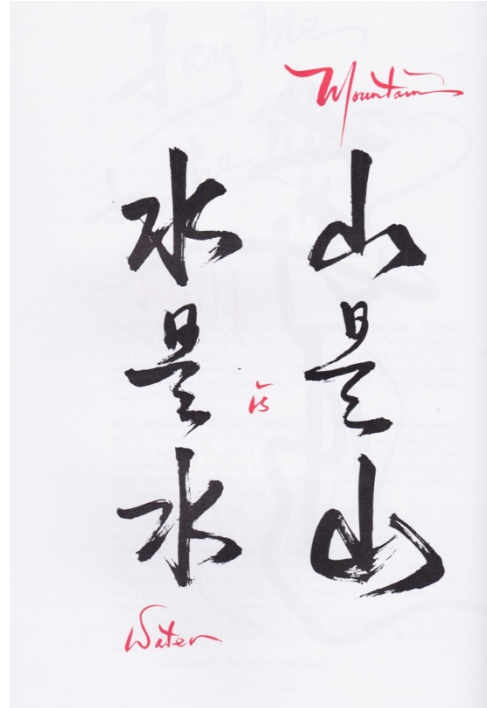 Mountain
山是山
is
水是水
Water